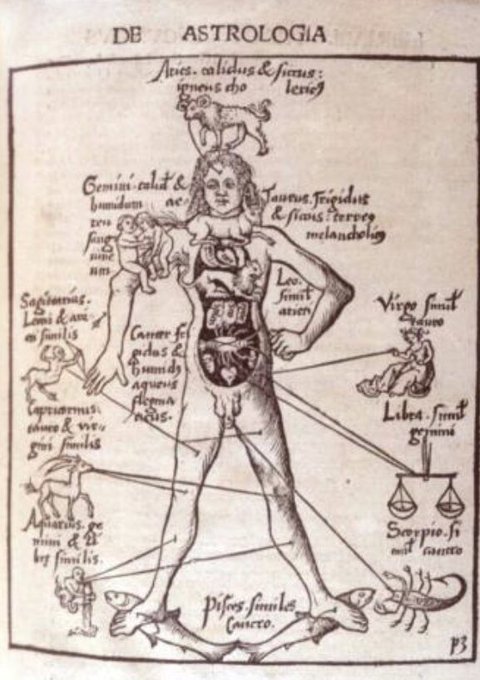 DE ASTROLOGIA
Aries. calidus & siccus:
igneus cho lericꝰ
Gemini. calid⁹ &
humidum ae-
reu
sang
uine
um
Taurus. frigidus
& siccus: terreꝰ
melancholicꝰ
Leo.
simil'
arieti
Sagitarius.
Leoni & arie
ti similis
Cancer fri
gidus &
humidꝰ
aqueus
flegma
ticus.
Virgo simil'
tauro
Capricornus.
tauro & vir-
gini similis
Libra. simil'
gemini
Aquarius. ge
mini & li
bre similis.
Scorpio. si
mil' cancro
Pisces. similes
Cancro.
p3